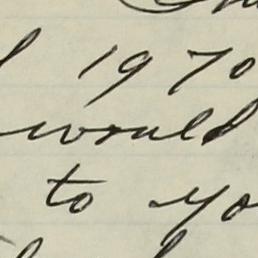 1970
would
to yo